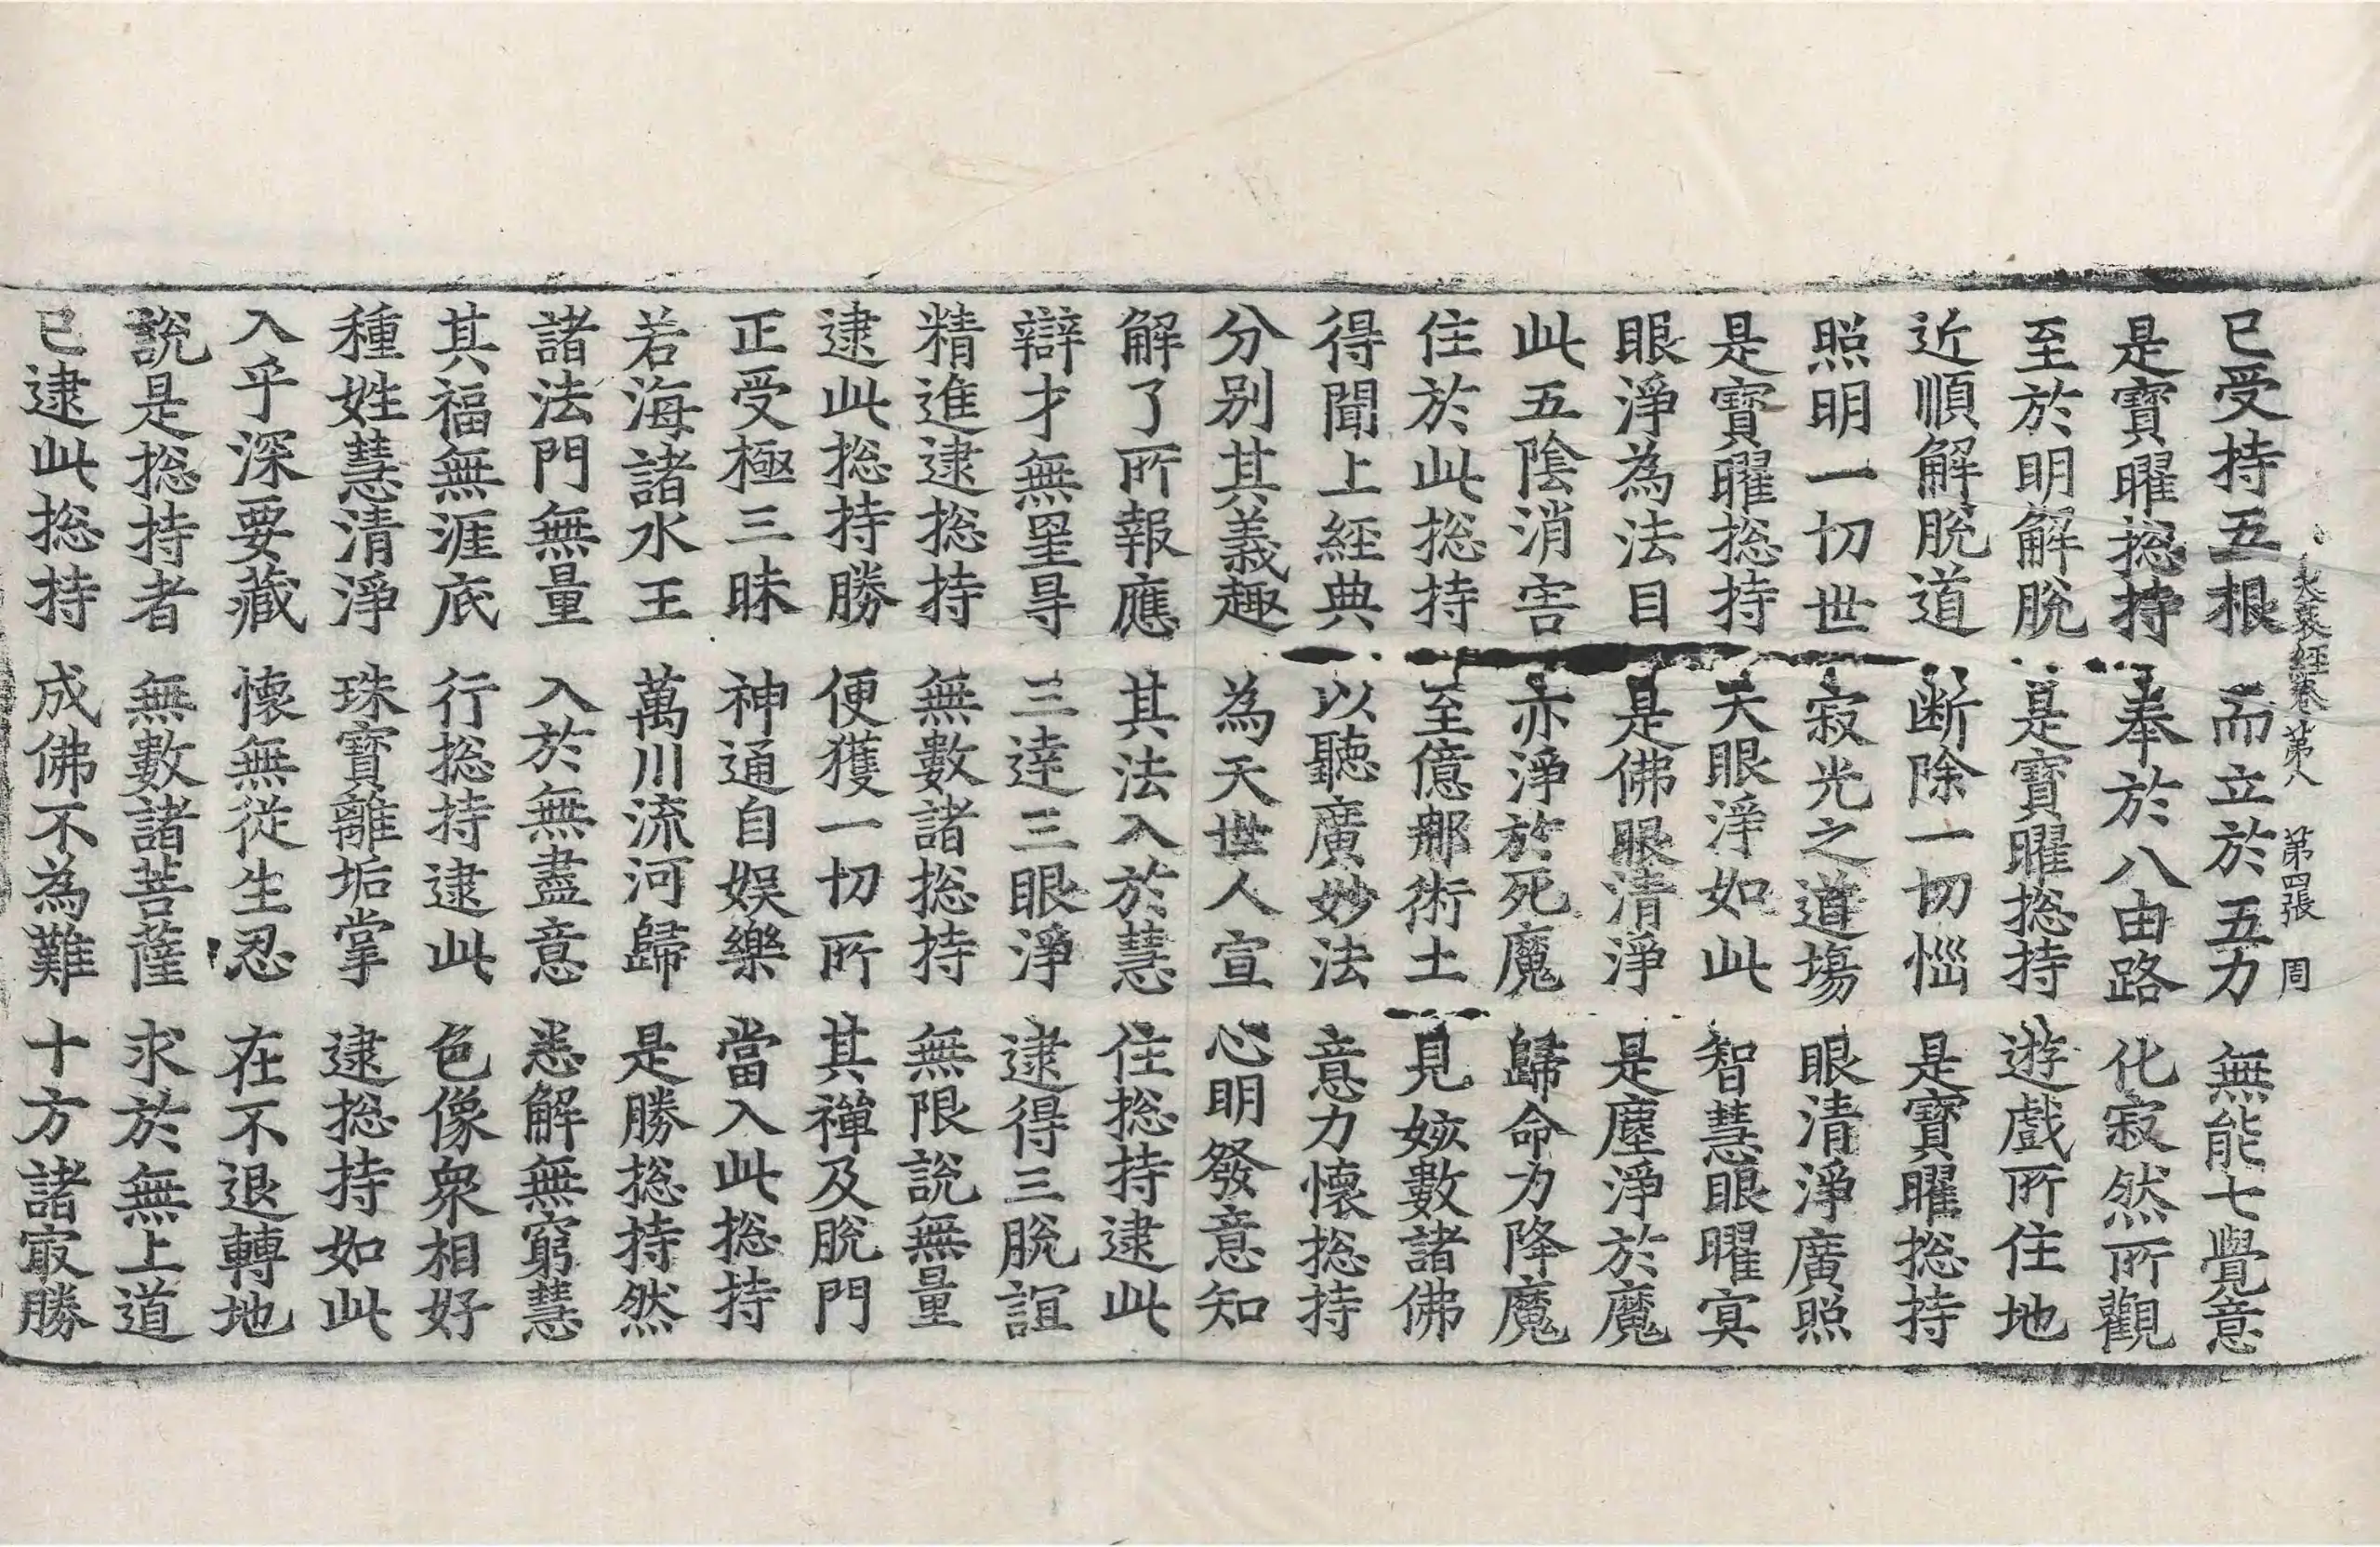 大哀經卷第八 第四張 周
已受持五根 而立於五力 無能七覺意
是寶曜揔持 奉於八由路 化寂然所觀
至於明解脫 是寶曜揔持 遊戲所住地
近順解脫道 断除一切惱 是寶曜揔持
照明一切世 寂光之道場 眼清淨廣照
是寶曜揔持 天眼淨如此 智慧眼曜冥
眼淨為法目 是佛眼清淨 是塵淨於魔
此五陰消害 亦淨於死魔 歸命力降魔
住於此揔持 至億那術土 見姟數諸佛
得聞上經典 以聽廣妙法 意力懷揔持
分別其義趣 為天世人宣 心明發意知
解了所報應 其法入於慧 住揔持逮此
辯才無罣㝵 三達三眼淨 逮得三脫誼
精進逮揔持 無數諸揔持 無限說無量
逮此揔持勝 便獲一切所 其禪及脫門
正受極三昧 神通自娛樂 當入此揔持
若海諸水王 萬川流河歸 是勝揔持然
諸法門無量 入於無盡意 悉解無窮慧
其福無涯底 行揔持逮此 色像衆相好
種姓慧清淨 珠寶離垢掌 逮揔持如此
入乎深要藏 懷無從生忍 在不退轉地
說是揔持者 無數諸菩薩 求於無上道
已逮此揔持 成佛不為難 十方諸寂勝